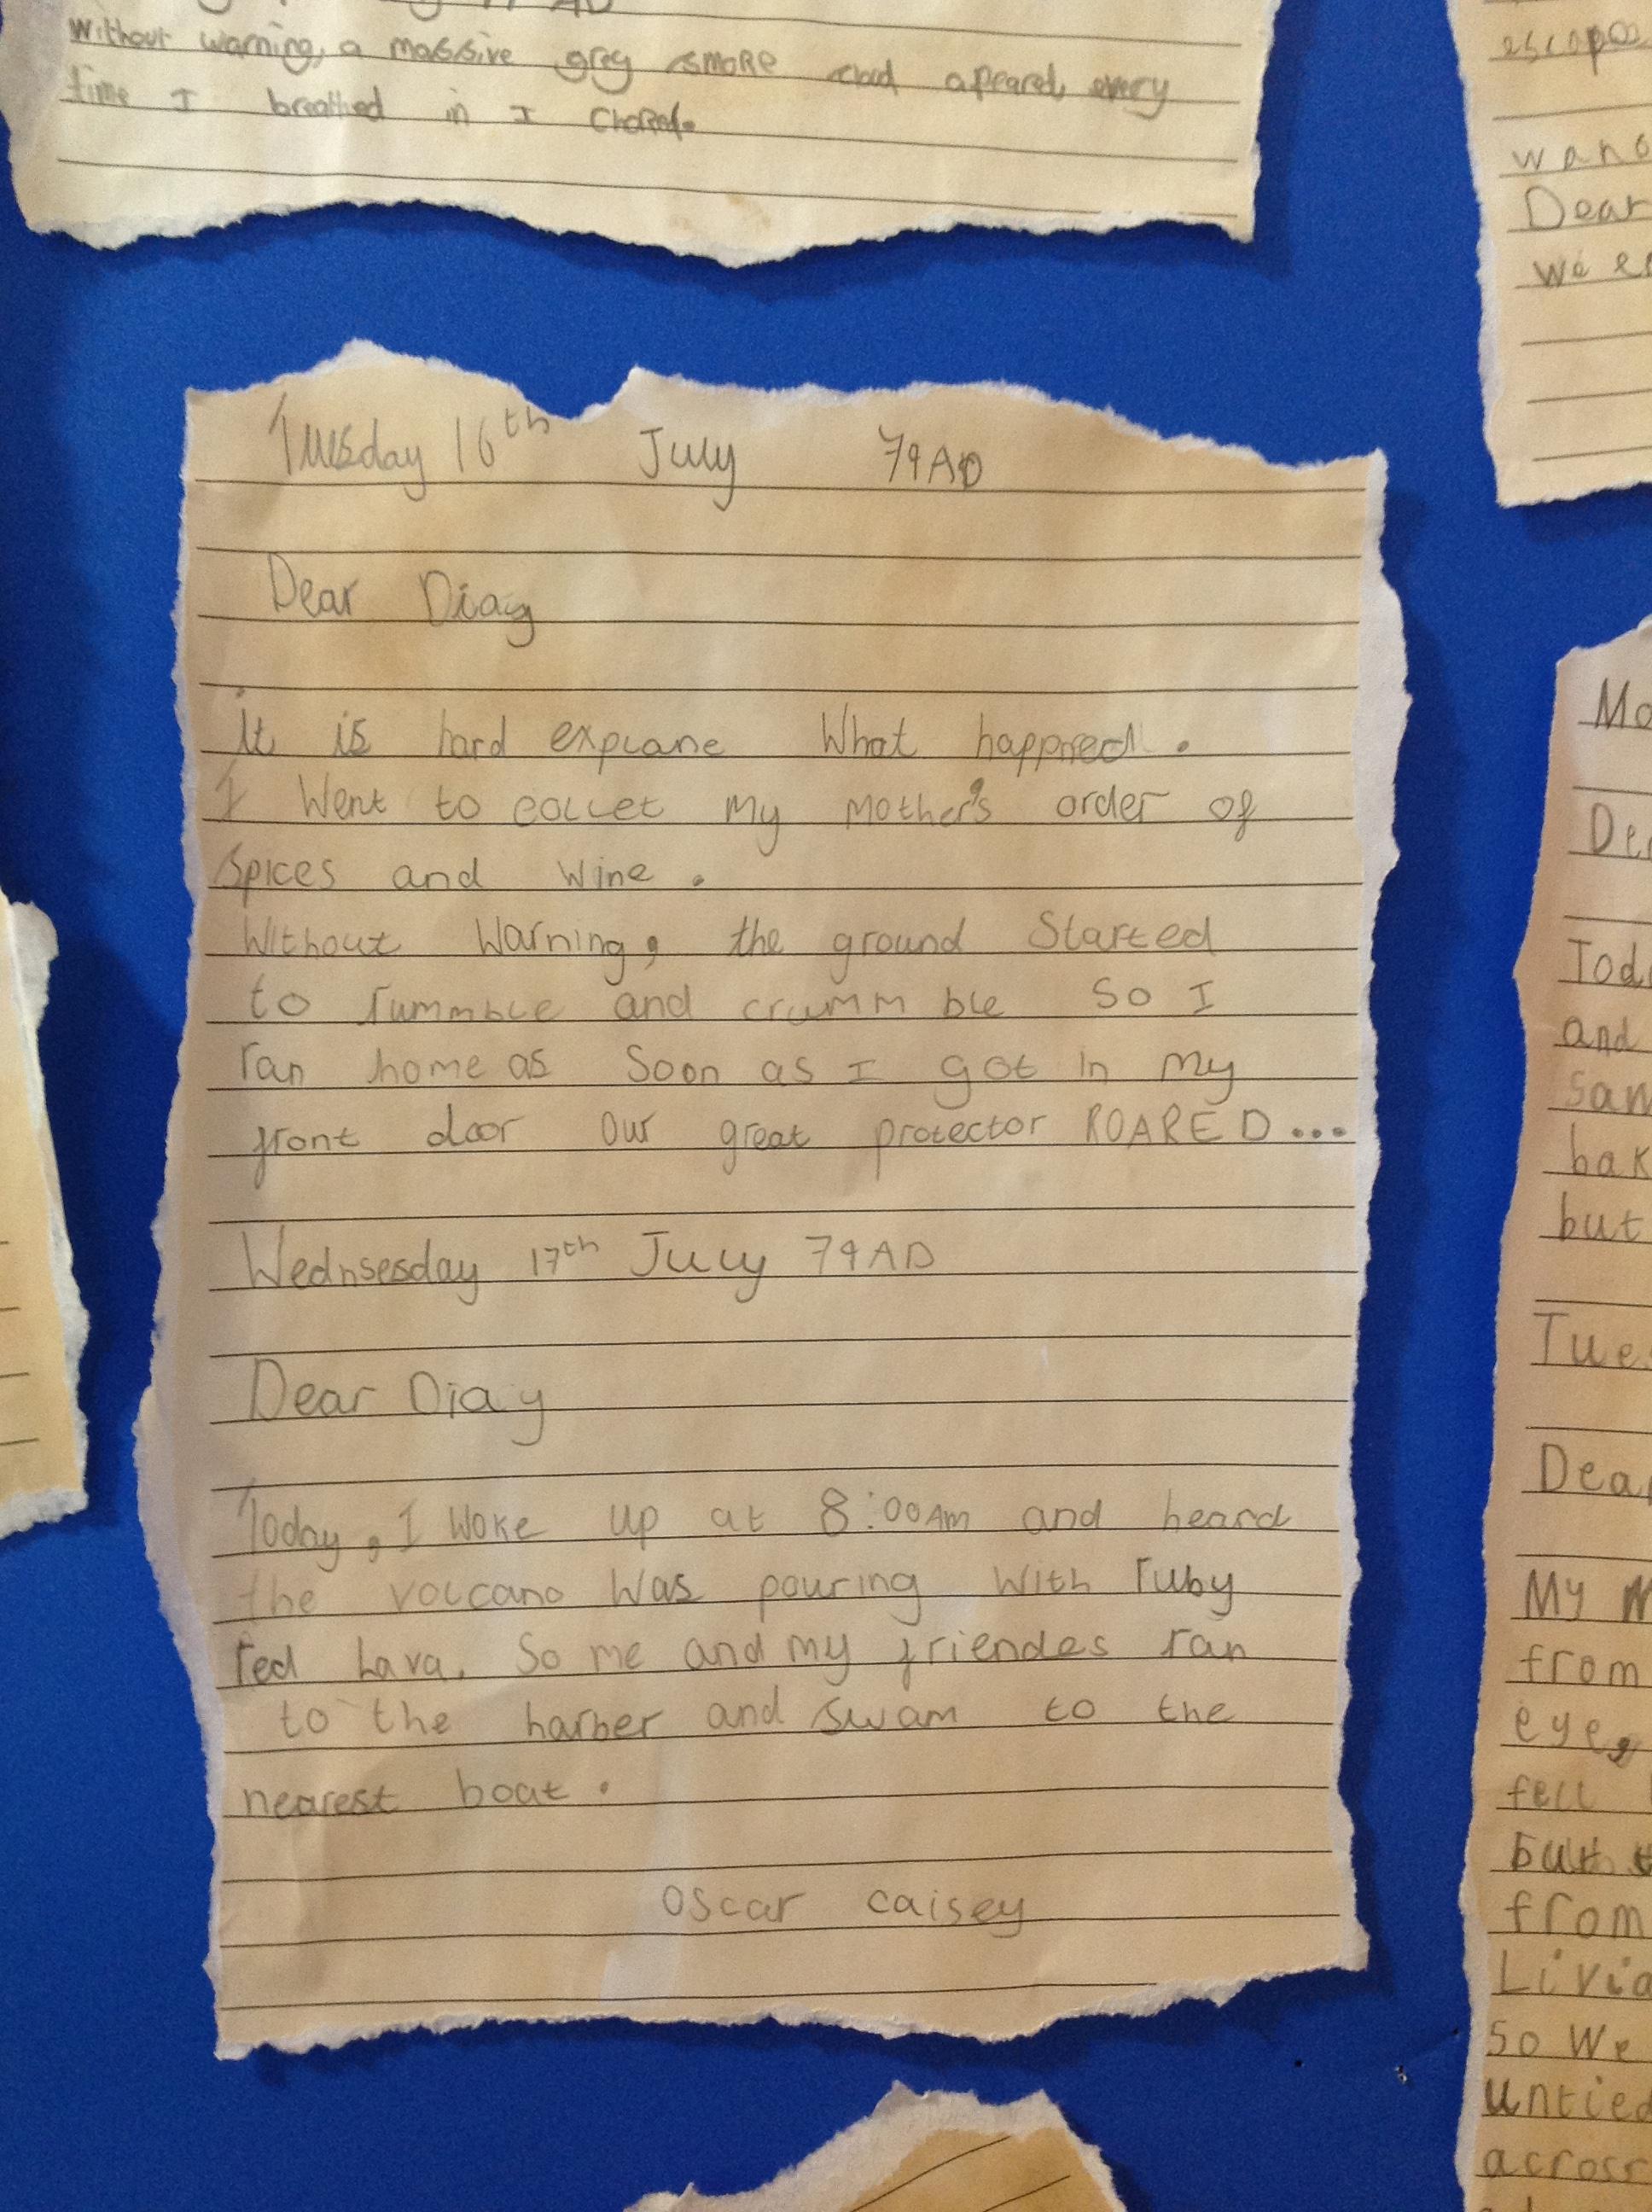 without warning, a massive grey smoke cloud apeared, every
time I breathed in I
Tuesday 16th July 79AD
Dear Diay
it is hard explane What happned.
I Went to collet my mother's order of
spices and wine.
Without Warning, the ground started
to rummble and crumm ble so I
ran home as soon as I got in my
front door our great protector ROARED...
Wednsesday 17th July 79AD
Dear Diay
Today, I woke up at 8:00Am and heard
the volcano was pouring with ruby
red lava. So me and my friendes ran
to the harber and swam to the
nearest boat.
Oscar Caisey
Dear
Dear
and
but
My
from
eye,
fell
but
from
so we
untied